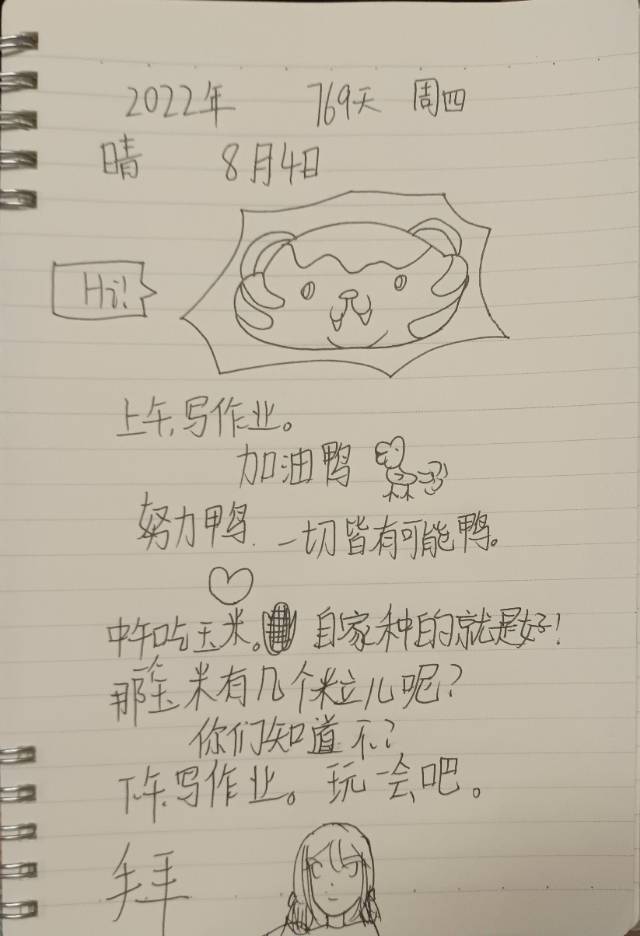 2022年 769天 周四
晴 8月4日
Hi!
上午,写作业。
加油鸭
努力鸭. 一切皆有可能鸭。
中午吃玉米。自家种的就是好!
那个玉米有几个粒儿呢?
你们知道不?
下午,写作业。玩一会吧。
拜